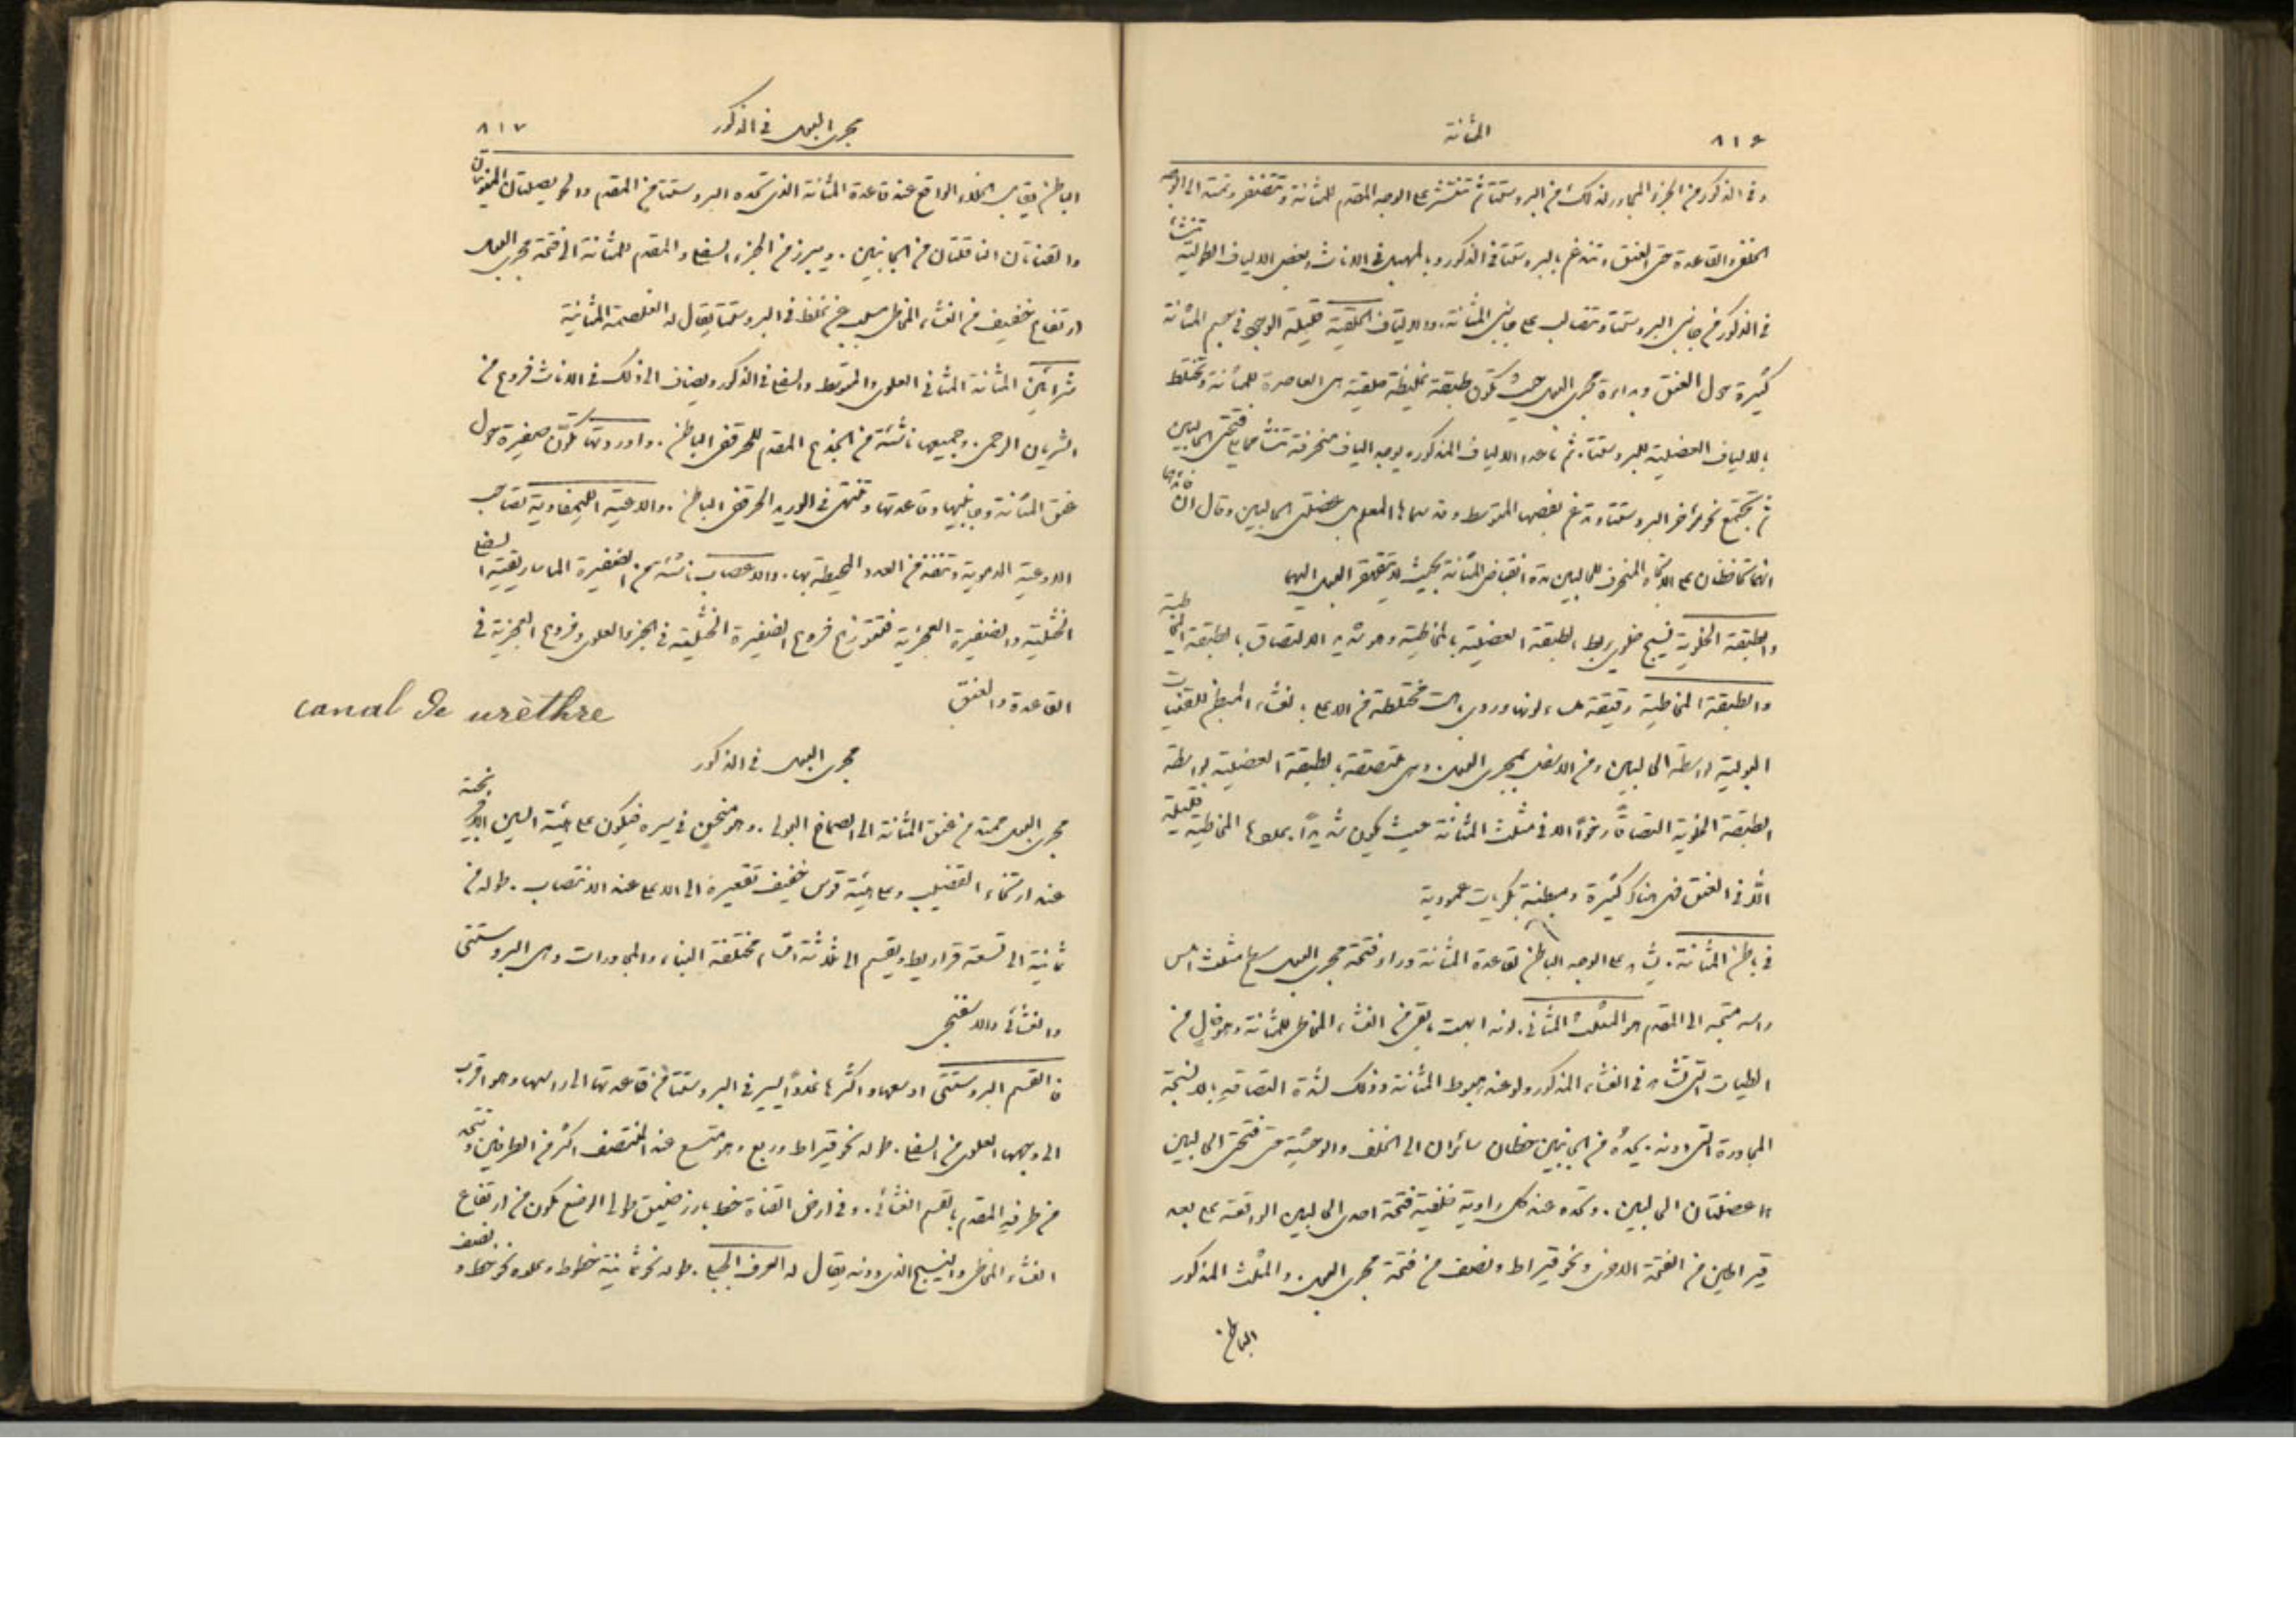 ٨١٦ المثانة
وفي الذكور من الجزء المجاور لذلك من البروستتا ثم تنتشر على الوجه المقدم للمثانة وتتضفر وتمتد الى الوجه
الخلفي والقاعدة حتى العنق وتندغم بالبروستتا في الذكور وبالمهبل في الاناث وبعض الالياف الطولية تنشأ
في الذكور من جانبي البروستتا وتتصالب على جانبي المثانة. والالياف الحلقية قليلة الوجود في جسم المثانة
كثيرة حول العنق وبداءة مجرى البول حيث تكون طبقة غليظة حلقية هي العاصرة للمثانة وتختلط
بالالياف العضلية للبروستتا. ثم ما عدا الالياف المذكورة يوجد الياف منحرفة تنشأ مما يلي فتحتي الحالبين
ثم تجتمع نحو مؤخر البروستتا وتدغم بفصها المتوسط وقد سماها المعلم بل عضلتي الحالبين وقال ان فائدتها
انهما تحافظان على الاتجاه المنحرف للحالبين مدة انقباض المثانة بحيث لا يتقهقر البول اليهما
والطبقة الخلوية نسيج خلوي يربط الطبقة العضلية بالمخاطية وهو شديد الالتصاق بالطبقة المخاطية
والطبقة المخاطية رقيقة ملساء لونها وردي باهت مختلطة من الاعلى بالغشاء المبطن للقنيات
البولية بواسطة الحالبين ومن الاسفل بمجرى البول. وهي ملتصقة بالطبقة العضلية بواسطة
الطبقة الخلوية التصاقًا رخوًا الا في مثلث المثانة حيث يكون شديدًا. بملوها المخاطية قليلة
الا في العنق فهي هناك كثيرة ومبطنة بكريات عمودية
في باطن المثانة. يشاهد على الوجه الباطن لقاعدة المثانة وراء فتحة مجرى البول سطح مثلث املس
راسه متجه الى المقدم هو المثلث المثاني. لونه ابهت مما بقي من الغشاء المخاطي للمثانة وهو خالٍ من
الطيات التي تشاهد في الغشاء المذكور ولو عند هبوط المثانة وذلك لشدة التصاقه بالانسجة
المجاورة التي دونه. يحده من الجانبين خطان سائران الى الخلف والوحشية حتى فتحتي الحالبين
هما عضلتان الحالبين. وتحده عند كل زاوية خلفية فتحة احدى الحالبين الواقعة على بعد
قيراطين من الفتحة الاخرى ونحو قيراط ونصف من فتحة مجرى البول. والمثلث المذكور
الباطن
مجرى البول في الذكور ٨١٧
الباطن يقابل الخلاء الواقع عند قاعدة المثانة الذي تحده البروستتا من المقدم والحويصلتان المنويتان
والقناتان الناقلتان من الجانبين. ويبرز من الجزء السفلي والمقدم للمثانة الى فتحة مجرى البول
ارتفاع خفيف من الغشاء المخاطي مسبب عن غلظ في البروستتا يقال له الغلصمة المثانية
شرايين المثانة المثاني العلوي والمتوسط والسفلي في الذكور ويضاف الى ذلك في الاناث فروع من
الشريان الرحمي. وجميعها ناشئة من الجذع المقدم للحرقفي الباطن. واوردتها تكون ضفيرة حول
عنق المثانة وجانبيها وقاعدتها وتنتهي في الوريد الحرقفي الباطن. والاوعية الليمفاوية تصاحب
الاوعية الدموية وتنفذ في الغدد المحيطة بها. والاعصاب ناشئة من الضفيرة الماساريقية السفلى
الخثلية والضفيرة العجزية فتتوزع فروع الضفيرة الخثلية في الجزء العلوي وفروع العجزية في
القاعدة والعنق
canal de urèthre
مجرى البول في الذكور
مجرى البول ممتد من عنق المثانة الى الصماخ البولي. وهو منحنٍ في سيره فيكون على هيئة السين الافرنجية
عند ارتخاء القضيب وعلى هيئة قوس خفيف تقعيره الى الاعلى عند الانتصاب. طوله من
ثمانية الى تسعة قراريط ويقسم الى ثلاثة اقسام مختلفة البناء والمجاورات وهي البروستتي
والغشائي والاسفنجي
فالقسم البروستتي اوسعها واكثرها تمددًا يسير في البروستتا من قاعدتها الى راسها وهو اقرب
الى وجهها العلوي من السفلي. طوله نحو قيراط وربع وهو متسع عند المنتصف اكثر من الطرفين ويتحد
من طرفه المقدم بالقسم الغشائي. وفي ارض القناة خط بارز ضيق طولي الوضع تكون من ارتفاع
الغشاء المخاطي والنسيج الذي دونه يقال له العرف الجبلي. طوله نحو ثمانية خطوط وعلوه نحو خط ونصف